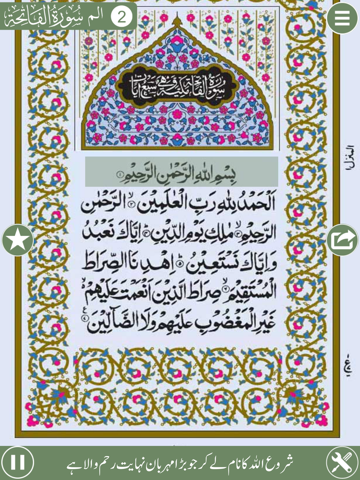 الم سُوْرَةُ الْفَاتِحَة
2
سُوْرَةُ الْفَاتِحَةِ مَكِّيَّةٌ وَّهِيَ سَبْعُ اٰيَاتٍ
بِسْمِ اللّٰهِ الرَّحْمٰنِ الرَّحِيْمِ ۝۱
اَلْحَمْدُ لِلّٰهِ رَبِّ الْعٰلَمِيْنَ ۝ الرَّحْمٰنِ
الرَّحِيْمِ ۝ مٰلِكِ يَوْمِ الدِّيْنِ ۝ اِيَّاكَ نَعْبُدُ
وَاِيَّاكَ نَسْتَعِيْنُ ۝ اِهْدِنَا الصِّرَاطَ
الْمُسْتَقِيْمَ ۝ صِرَاطَ الَّذِيْنَ اَنْعَمْتَ عَلَيْهِمْ
غَيْرِ الْمَغْضُوْبِ عَلَيْهِمْ وَلَا الضَّآلِّيْنَ ۝
شروع اللہ کا نام لے کر جو بڑا مہربان نہایت رحم والا ہے